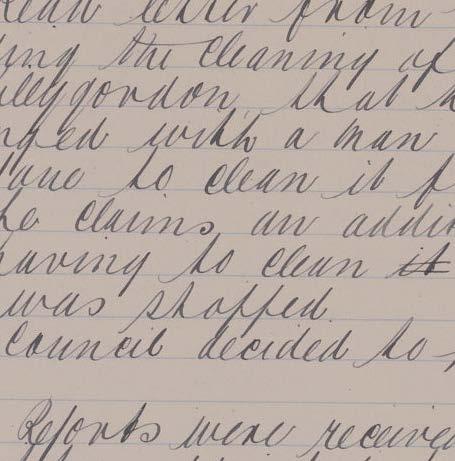 Read letter from
ing the cleaning of
llygordon, that h
nged with a man
ane to clean it f
he claims an addit
having to clean it
was stopped
Council decided to
Reports were received